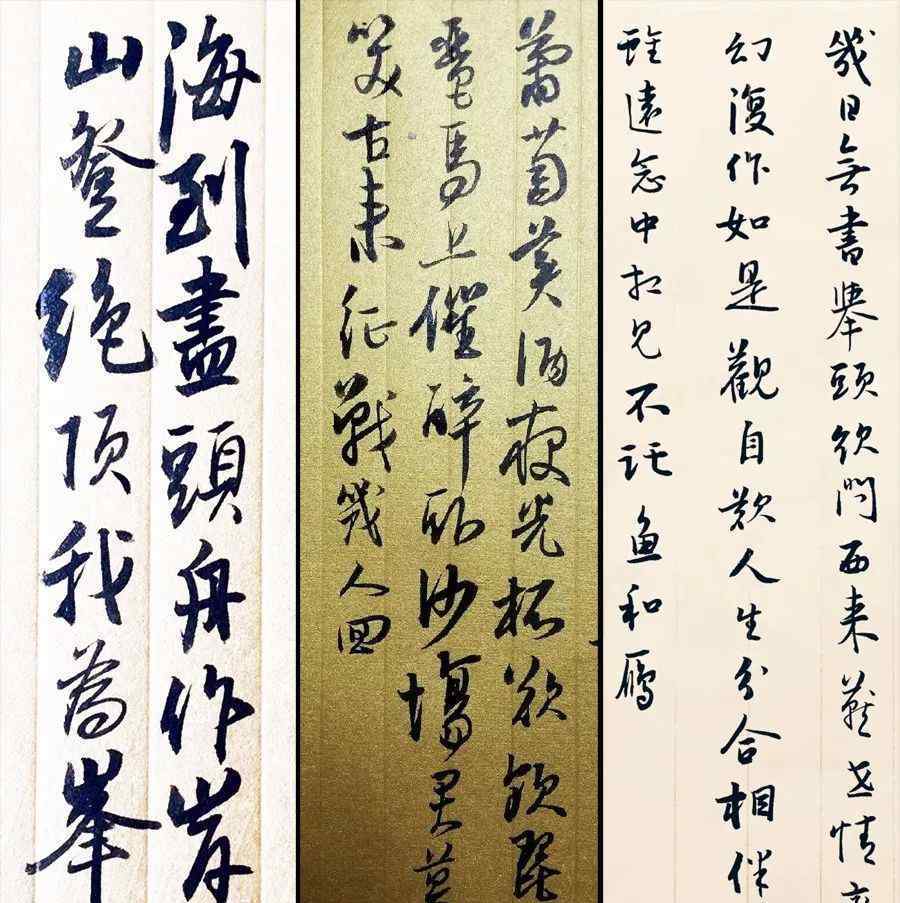 海到盡頭舟作岸
山登絶顶我為峯
葡萄美酒夜光杯欲飲琵
琶馬上催醉卧沙場君莫
笑古来征戰幾人回
幾日無書舉頭欲問西来燕世情
幻復作如是觀自歎人生分合相伴
雖遠念中相見不託鱼和雁